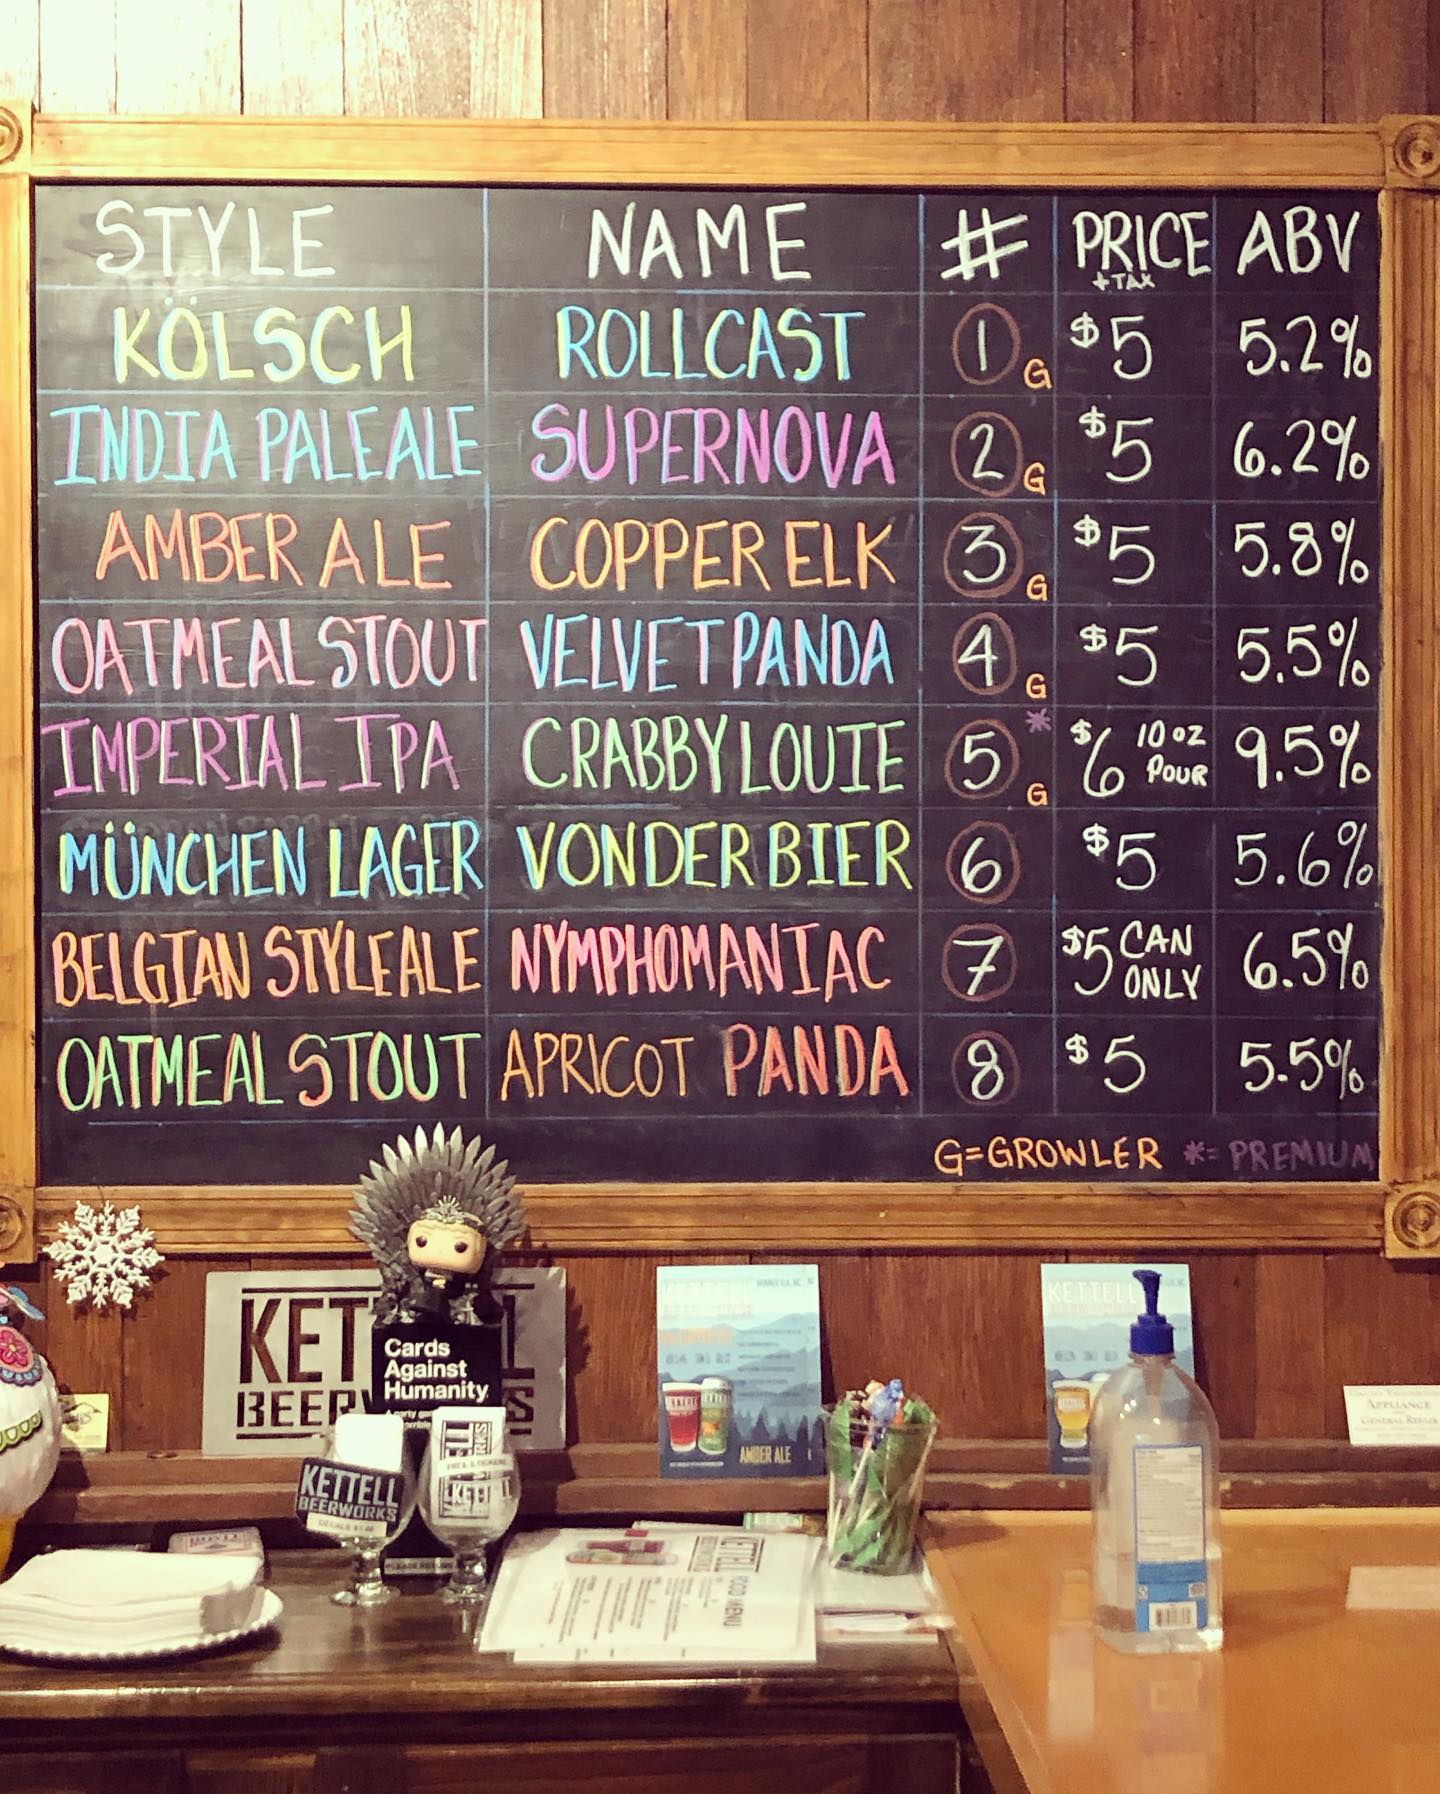 STYLE NAME # PRICE ABV
+TAX
KÖLSCH ROLLCAST 1 G $5 5.2%
INDIA PALE ALE SUPERNOVA 2 G $5 6.2%
AMBER ALE COPPER ELK 3 G $5 5.8%
OATMEAL STOUT VELVET PANDA 4 G $5 5.5%
IMPERIAL IPA CRABBY LOUIE 5 * G $6 10 OZ POUR 9.5%
MÜNCHEN LAGER VONDERBIER 6 $5 5.6%
BELGIAN STYLE ALE NYMPHOMANIAC 7 $5 CAN ONLY 6.5%
OATMEAL STOUT APRICOT PANDA 8 $5 5.5%
G=GROWLER *= PREMIUM
KET
BEER
Cards
Against
Humanity
KETTELL
BEERWORKS
KETTELL
AMBER ALE
KETTELL
APPLIANCE
GENERAL REPAIR
KETTELL
BEERWORKS
FOOD MENU